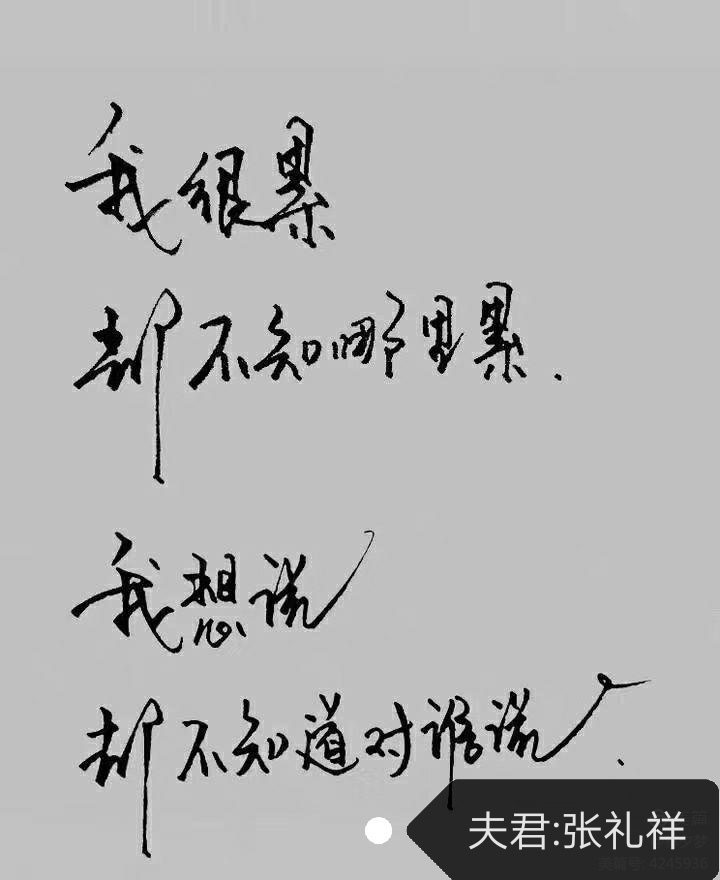 我很累
却不知哪里累.
我想说
却不知道对谁说.
夫君:张礼祥
美篇号 4245936